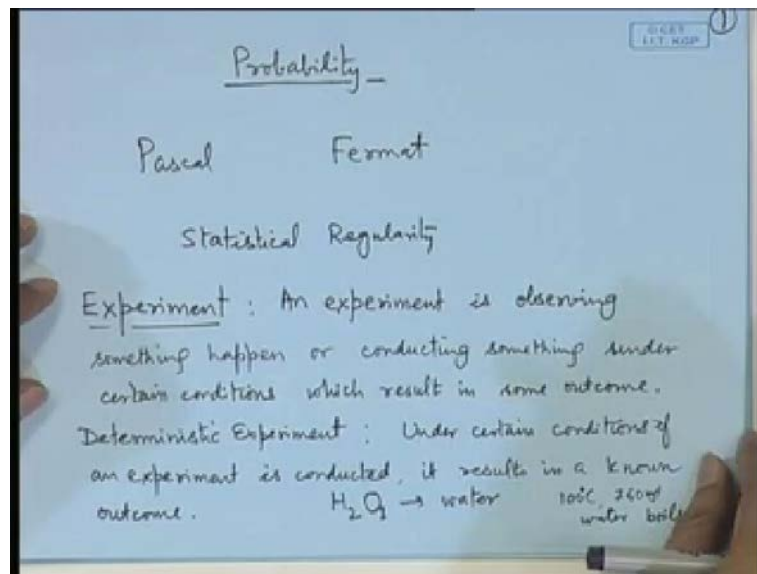 ①
© CET
I.I.T. KGP
Probability
Pascal Fermat
Statistical Regularity
Experiment : An experiment is observing
something happen or conducting something under
certain conditions which result in some outcome.
Deterministic Experiment : Under certain conditions if
an experiment is conducted, it results in a known
outcome. H₂O → water 100°C, 760
water boils